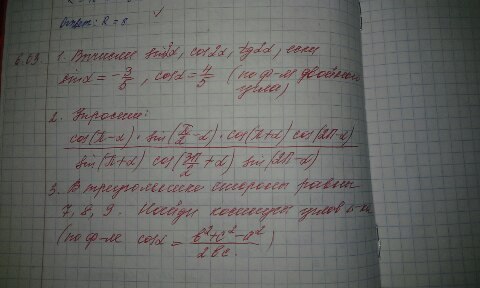 Ответ: R = 8
6.09. 1. Вычисли sin2α, cos2α, tg2α, если
sinα = -3/5, cosα = 4/5 (по ф-ле двойного
угла)
2. Упрости:
cos(π-α) · sin(π/2-α) · cos(π+α) cos(2π-α)
sin(π+α) cos(3π/2+α) sin(2π-α)
3. В треугольнике стороны равны
7, 8, 9. Найди косинусы углов
(по ф-ле cosα = b²+c²-a² / 2bc